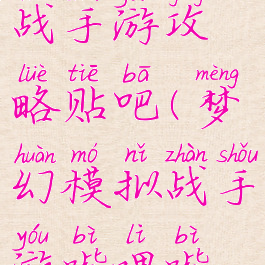 战手游攻
lüè tiē bā mèng
略贴吧(梦
huàn mó nǐ zhàn shǒu
幻模拟战手
yóu bì lì bì
游哔哩哔